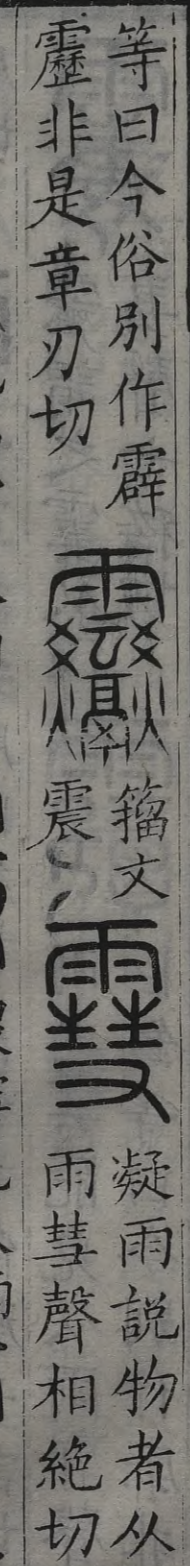 等曰今俗別作霹
靂非是章刃切
𩇒
籕文
震
䨮
凝雨説物者从
雨彗聲相絶切